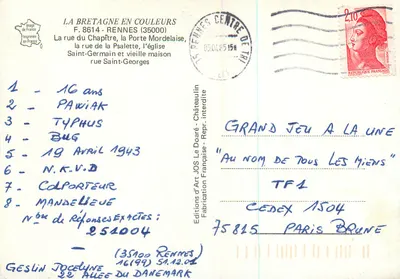 LA BRETAGNE EN COULEURS
F. 8614 - RENNES (35000)
La rue du Chapître, la Porte Mordelaise,
la rue de la Psalette, l'église
Saint-Germain et vieille maison
rue Saint-Georges
1 - 16 ans
2 - PAWIAK
3 - TYPHUS
4 - BUG
5 - 19 AVRIL 1943
6 - N.K.V.D
7 - COLPORTEUR
8 - MANDELIEU
Nbre de Réponses EXACTES :
251004
(35100 RENNES)
16(99) 51.12.01
GESLIN JOCELYNE
22 ALLÉE DU DANEMARK
Editions d'Art JOS Le Doaré - Châteaulin
Fabrication Française - Repr. interdite
RENNES CENTRE DE TRI
2,10
GRAND JEU A LA UNE
"AU NOM DE TOUS LES MIENS"
TF1
CEDEX 1504
75815 PARIS BRUNE